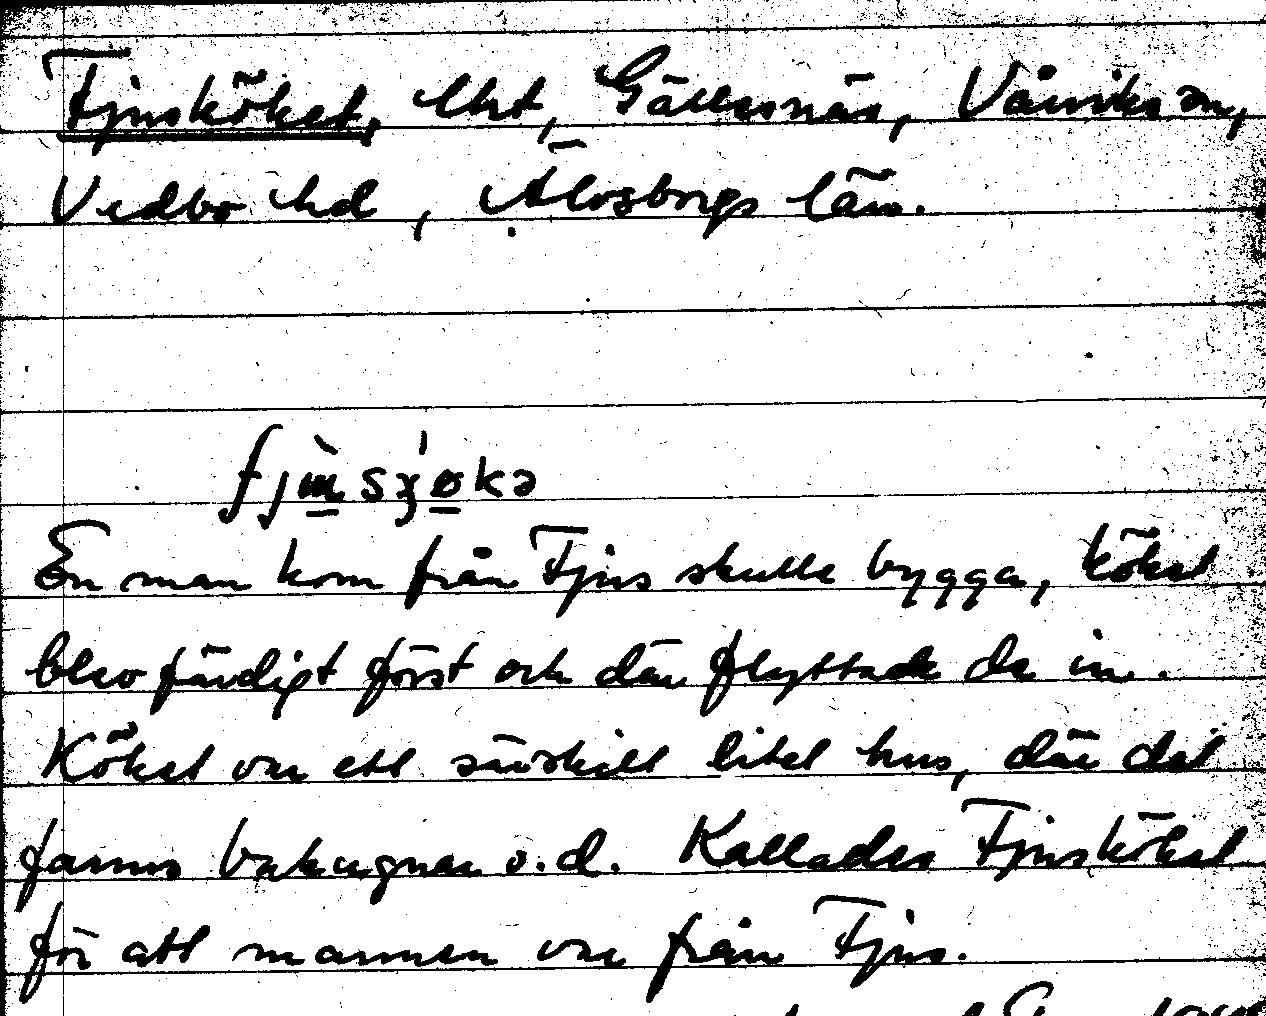 Fjusköket, lht, Gällesnäs, Vårviks sn,
Vedbo hd, Älvsborgs län.
En man kom från Fjus skulle bygga, köket
blev färdigt först och där flyttade de in.
Köket var ett särskilt litet hus, där det
fanns bakugnar o.d. Kallades Fjusköket
för att mannen var från Fjus.